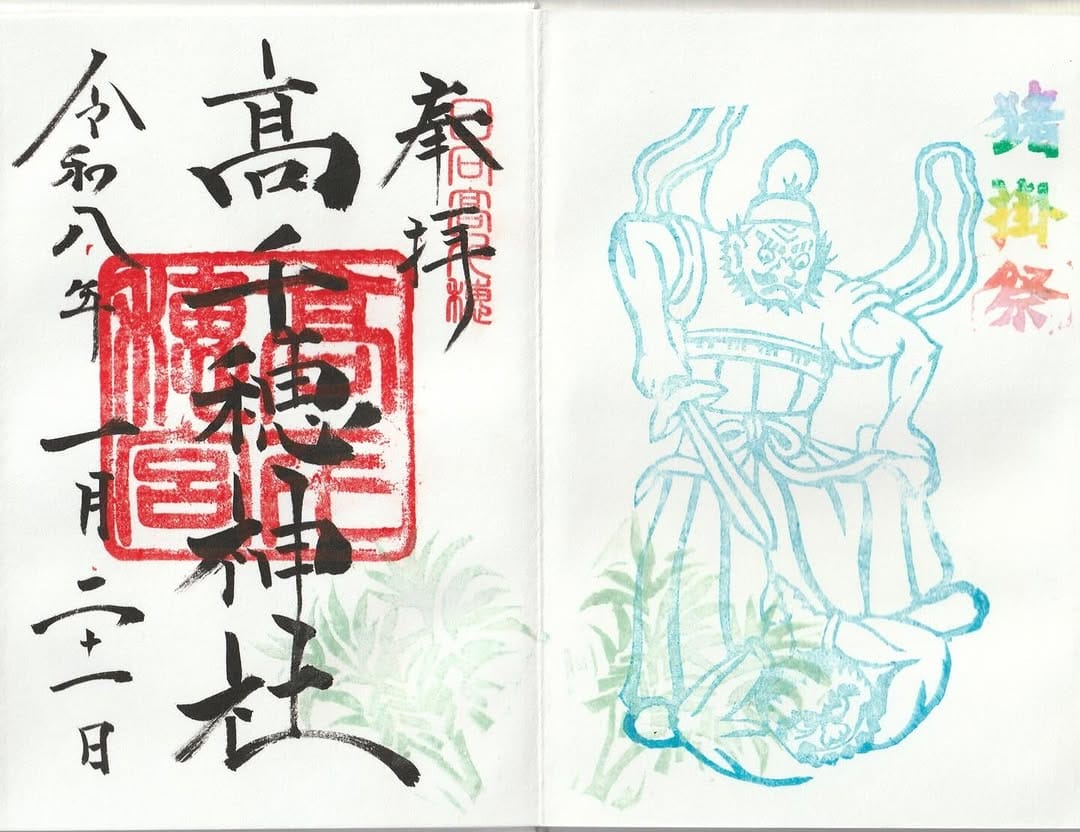 猪掛祭
奉拝
日向高千穂
高千穂神社
高千穂宮
令和八年一月二十一日